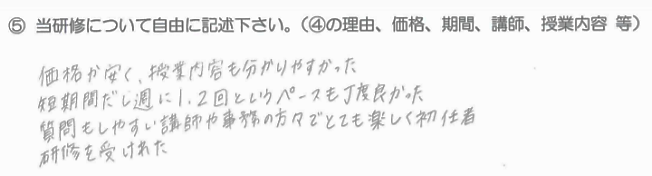 ⑤ 当研修について自由に記述下さい。（④の理由、価格、期間、講師、授業内容 等）
価格が安く、授業内容も分かりやすかった
短期間だし週に1.2回というペースも丁度良かった
質問もしやすい講師や事務の方々でとても楽しく初任者
研修を受けれた